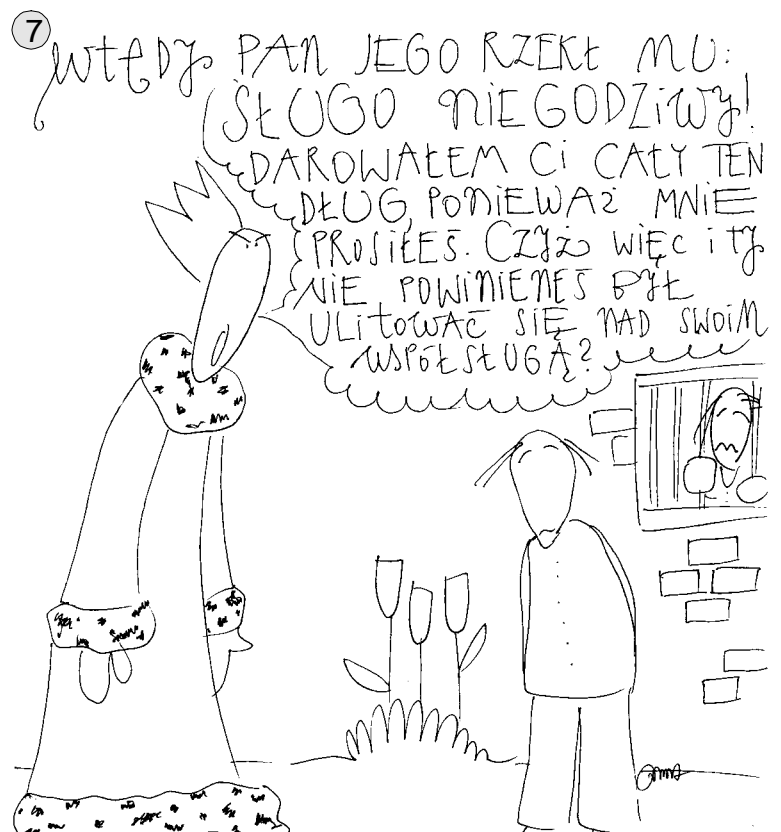 7
WTEDY PAN JEGO RZEKŁ MU:
SŁUGO NIEGODZIWY!
DAROWAŁEM CI CAŁY TEN
DŁUG, PONIEWAŻ MNIE
PROSIŁEŚ. CZYŻ WIĘC I TY
NIE POWINIENEŚ BYŁ
ULITOWAĆ SIĘ NAD SWOIM
WSPÓŁSŁUGĄ?